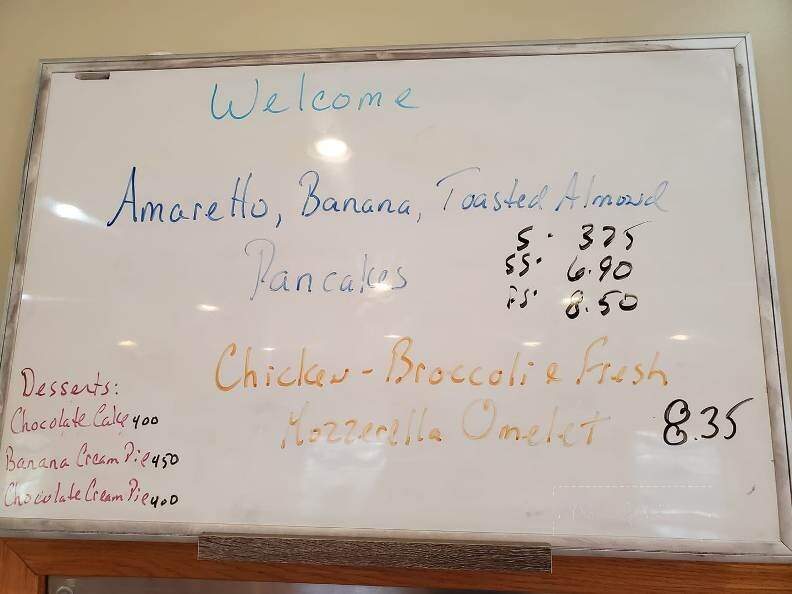 Welcome
Amaretto, Banana, Toasted Almond
Pancakes
S. 375
SS. 6.90
FS. 8.50
Chicken - Broccoli & Fresh
Mozzerella Omelet 8.35
Desserts:
Chocolate Cake 400
Banana Cream Pie 450
Chocolate Cream Pie 400